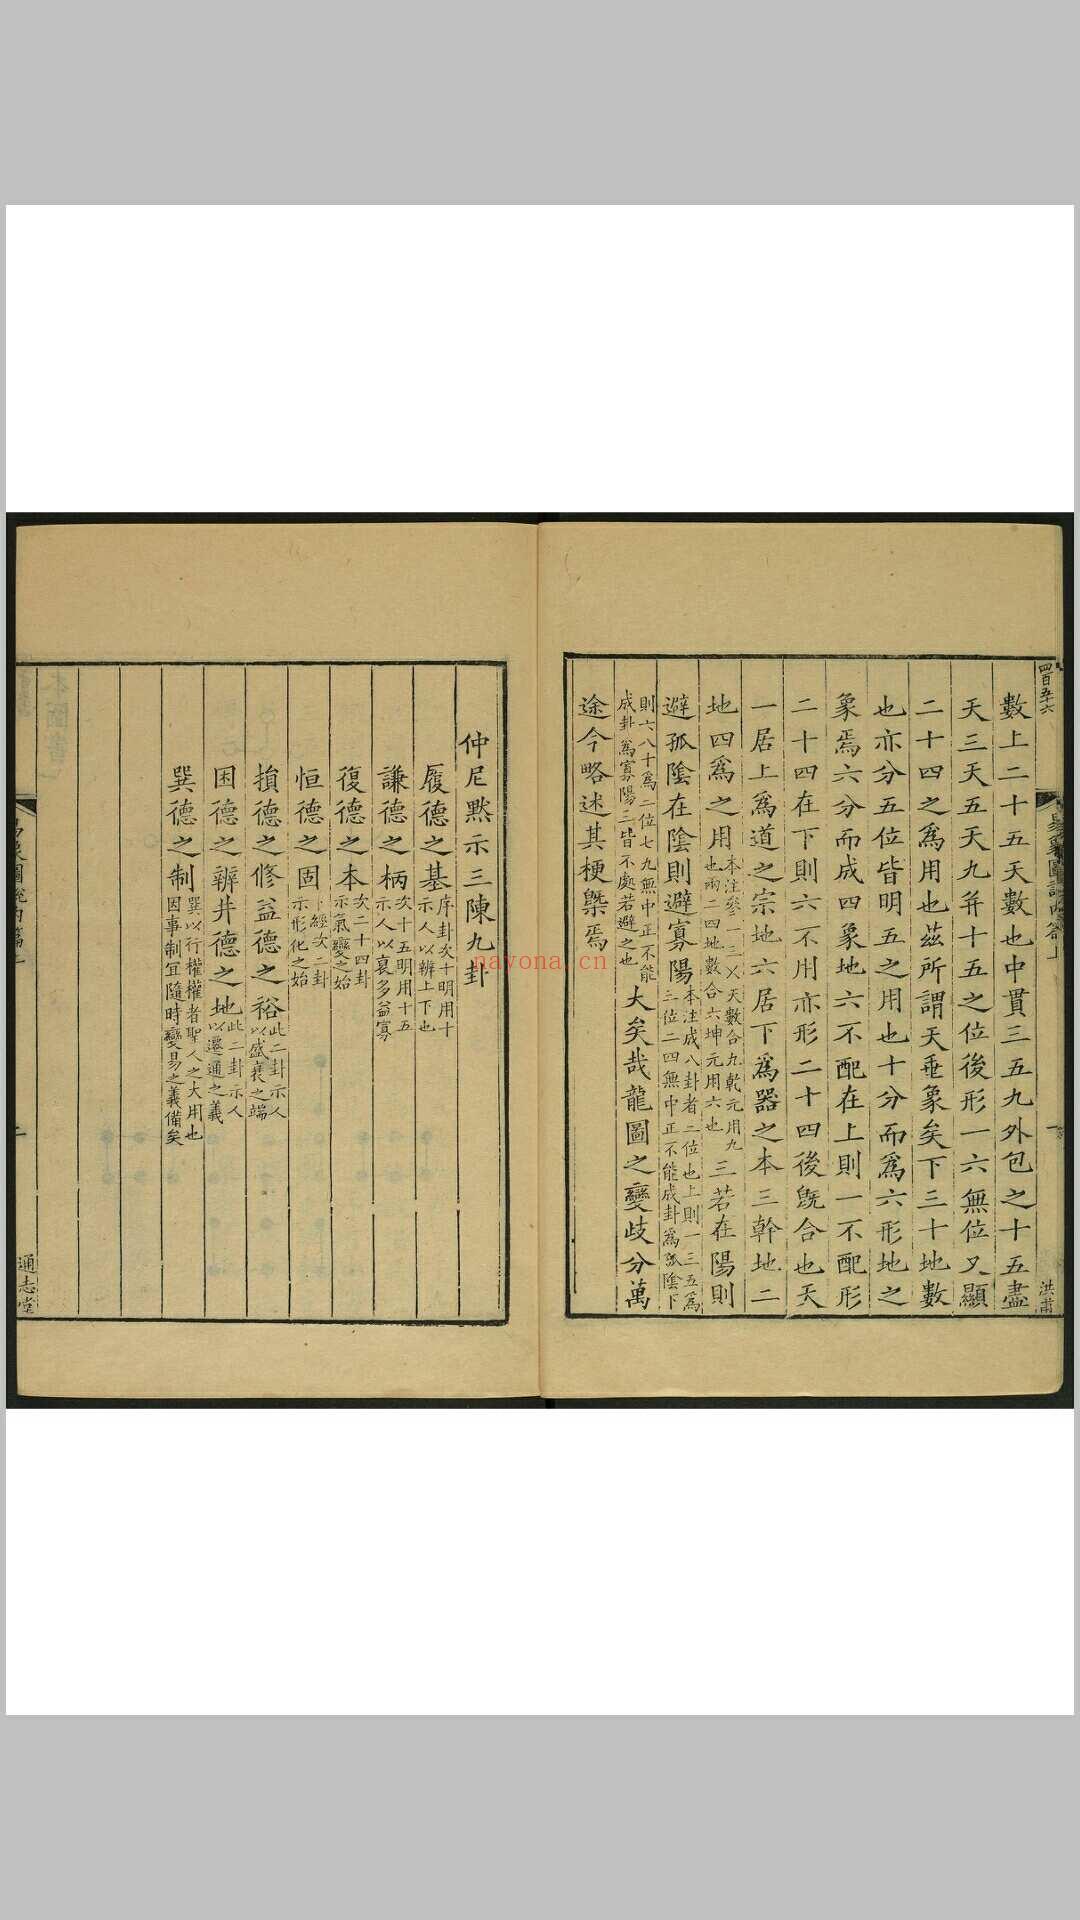 四百五十六
數上二十五天數也中貫三五九外包之十五盡
天三天五天九并十五之位後形一六無位又顯
二十四之為用也茲所謂天垂象矣下三十地數
也亦分五位皆明五之用也十分而為六形地之
象焉六分而成四象地六不配在上則一不配形
二十四在下則六不用亦形二十四後既合也天
一居上為道之宗地六居下為器之本三幹地二
地四為之用本注參一三乂天數合九乾元用九也兩二四地數合六坤元用六也三若在陽則
避孤陰在陰則避寡陽本注成八卦者三位也上則一三五為三位二四無中正不能成卦為孤陰下
則六八十為二位七九無中正不能成卦為寡陽三皆不處若避之也大矣哉龍圖之變歧分萬
途今略述其梗槩焉
洪甫
仲尼默示三陳九卦
履德之基序卦次十明用十示人以辨上下也
謙德之柄次十五明用十五示人以裒多益寡
復德之本次二十四卦示氣變之始
恒德之固下經次二卦示形化之始
損德之修益德之裕此二卦示人以盛衰之端
困德之辨井德之地此二卦示人以遷通之義
巽德之制巽以行權權者聖人之大用也因事制宜隨時變易之義備矣
通志堂
nayona.cn